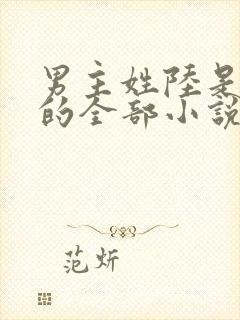 男主姓陸是
的全部小說
范炘